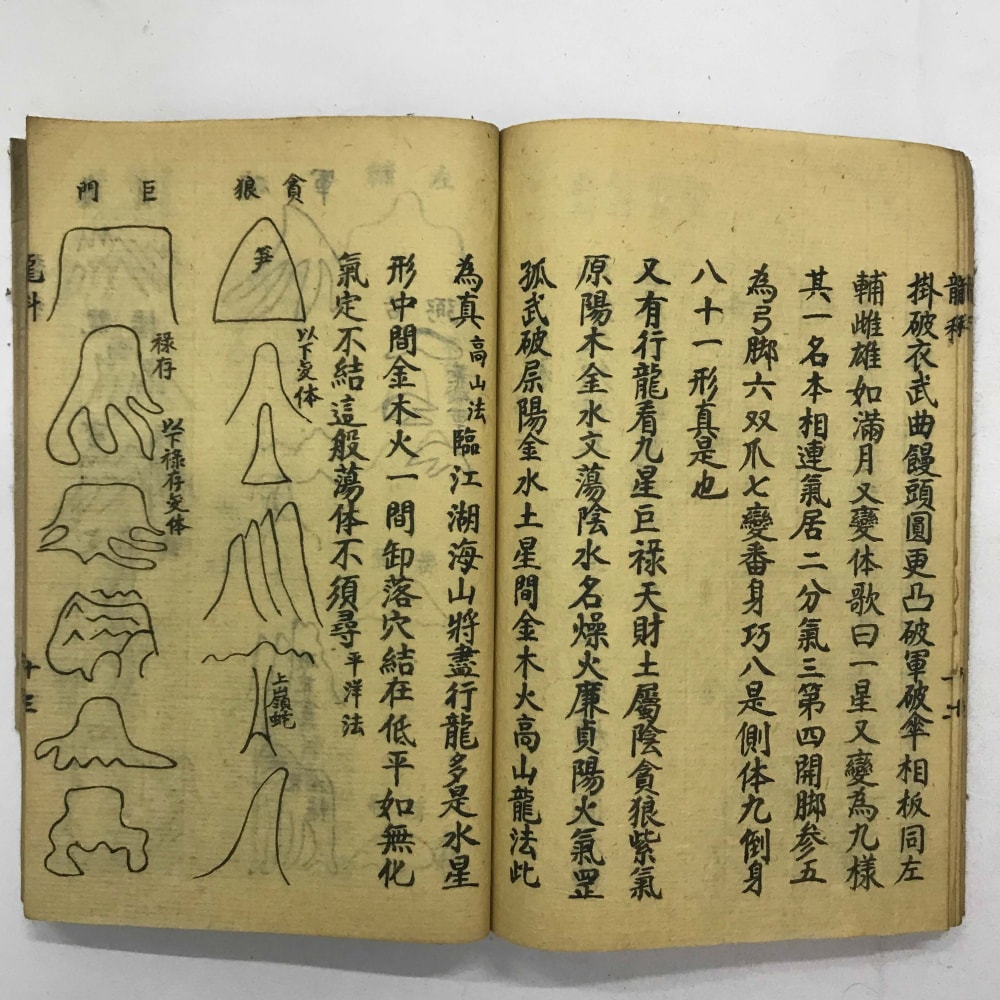 掛破衣武曲饅頭圓更凸破軍破傘相板同左
輔雌雄如滿月又變体歌曰一星又變為九樣
其一名本相連氣居二分氣三第四開脚參五
為弓脚六双爪七變番身巧八是側体九倒身
八十一形真是也
又有行龍看九星巨祿天財土屬陰貪狼紫氣
原陽木金水文蕩陰水名燥火廉貞陽火氣罡
孤武破屎陽金水土星間金木火高山龍法此
為真高山法臨江湖海山將盡行龍多是水星
形中間金木火一間卸落穴結在低平如無化
氣定不結這般蕩体不須尋平洋法
貪狼
笋
以下変体
上嶺蛇
巨門
祿存
以下祿存変体